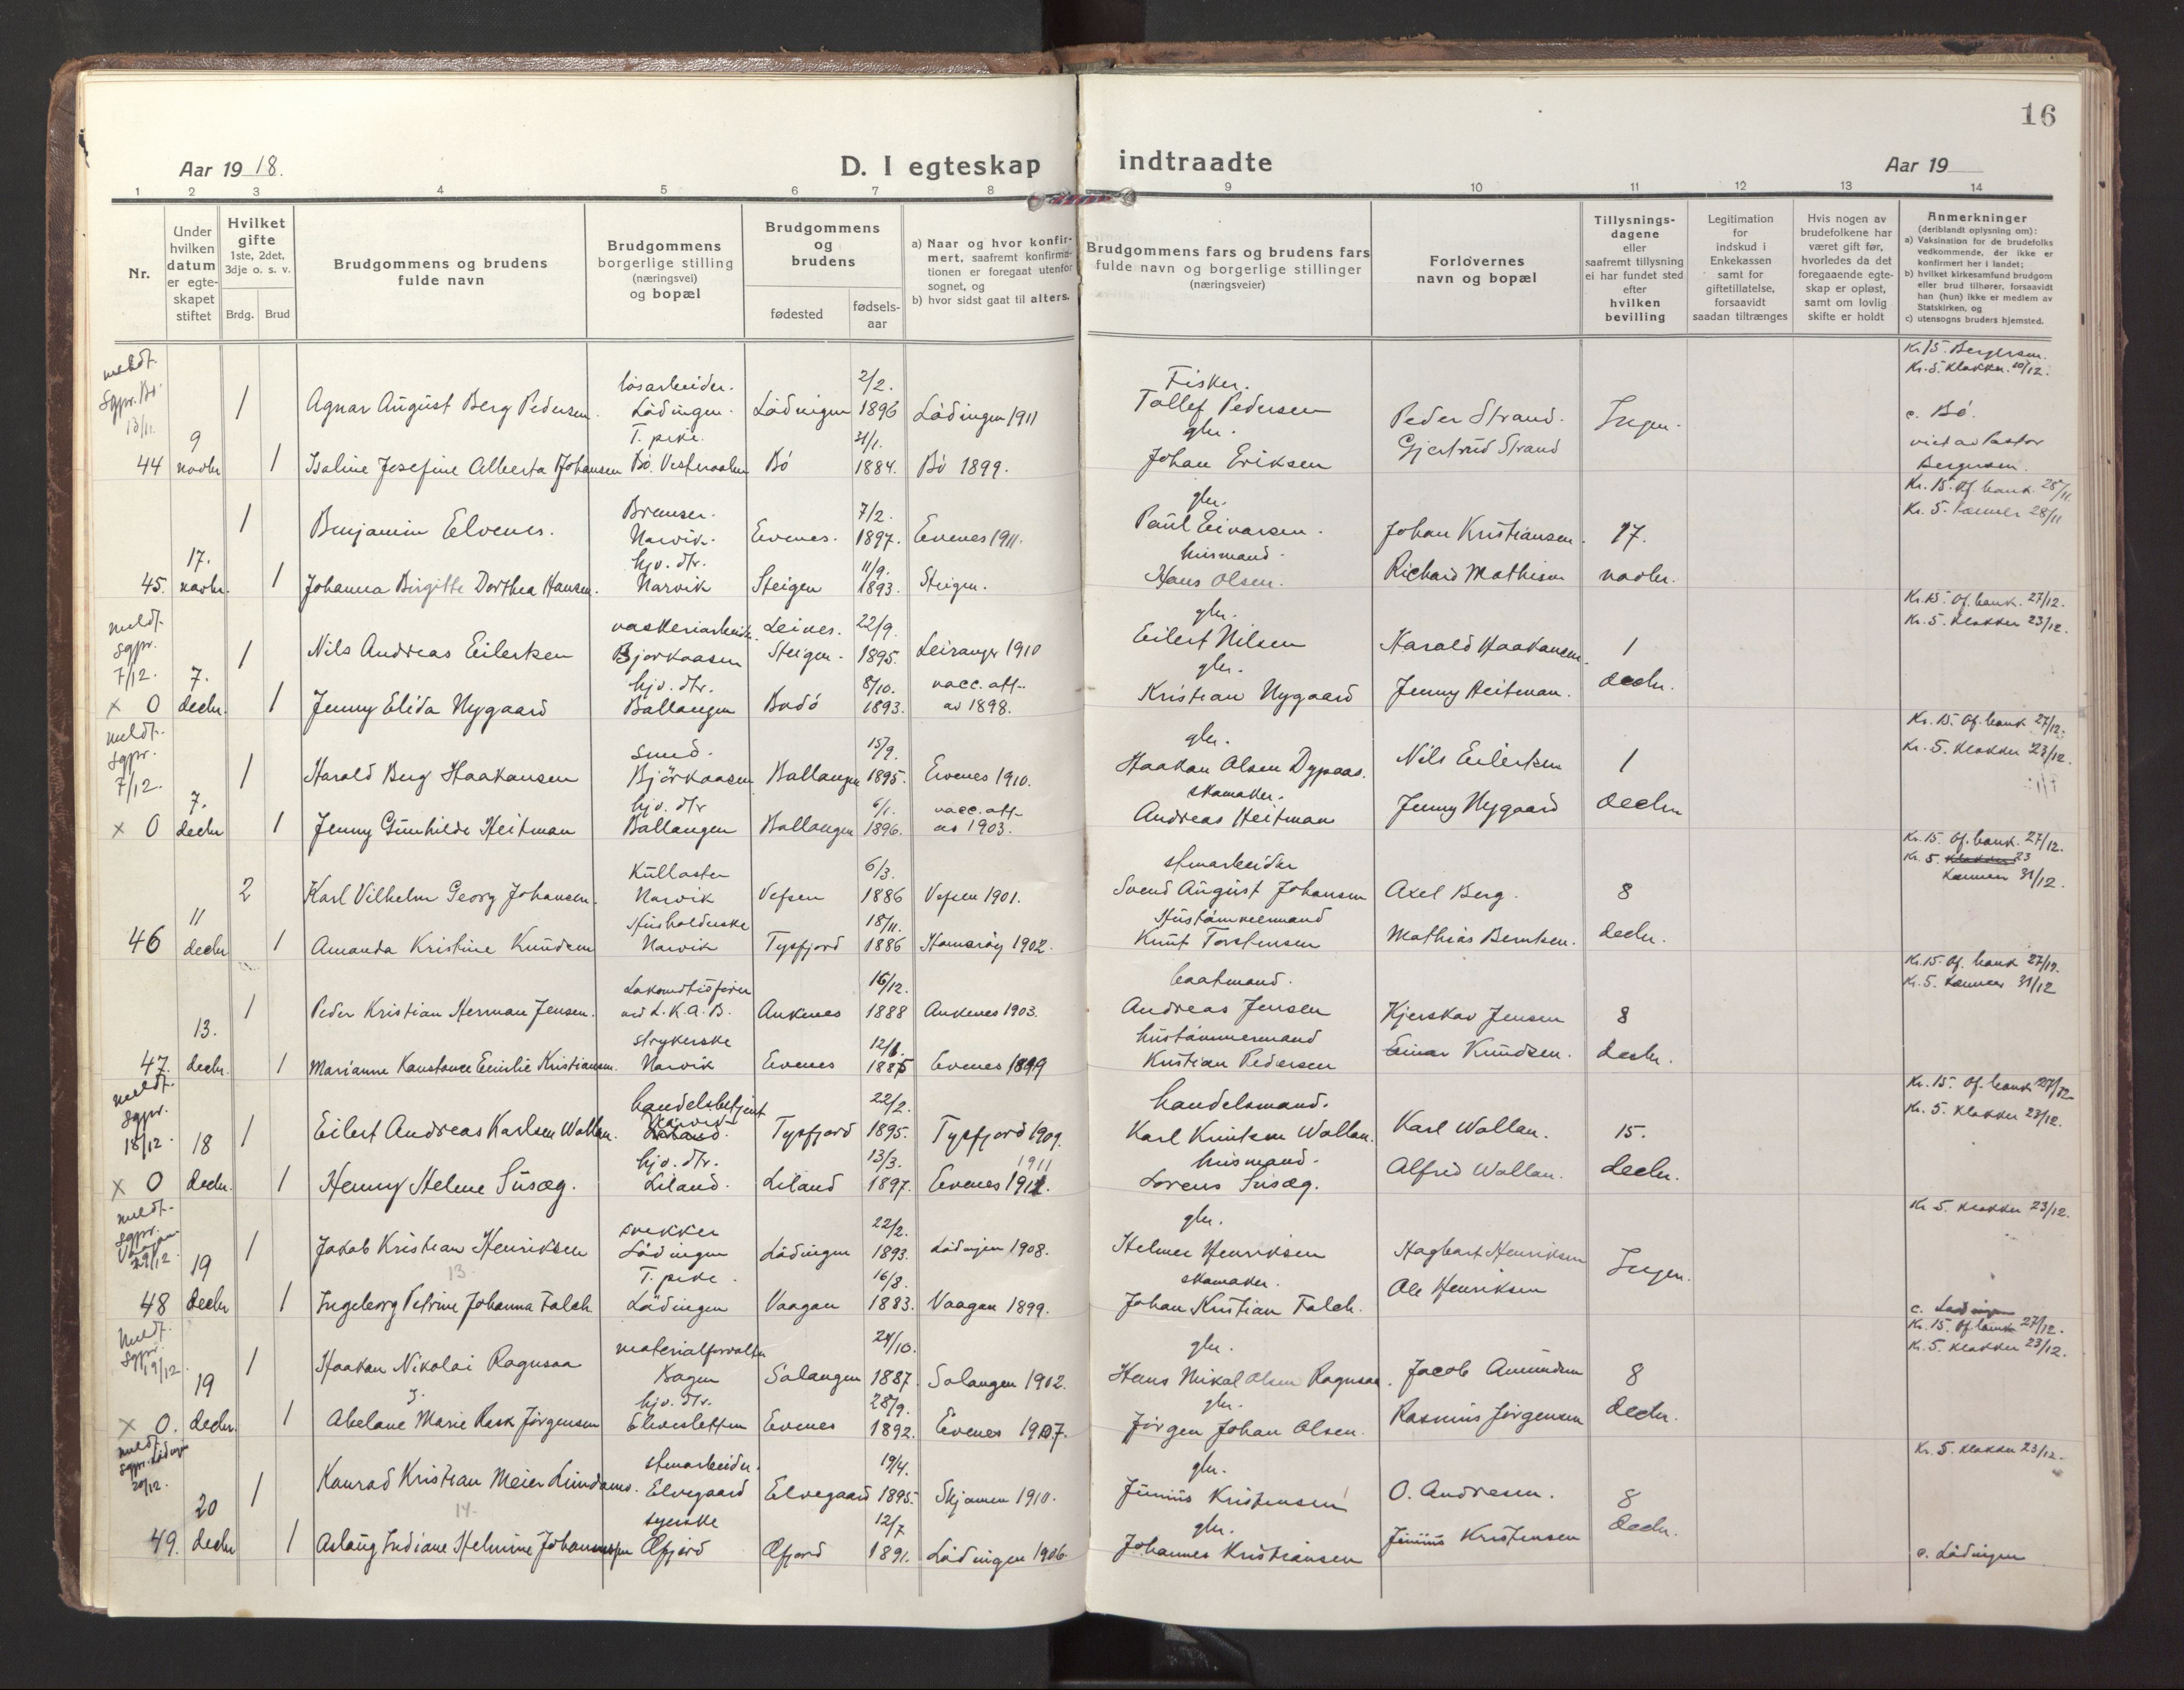 16
Aar 19 18.
D. I egteskap indtraadte
Aar 19
1 2 3 4 5 6 7 8 9 10 11 12 13 14
Nr.
Under hvilken datum er egte-skapet stiftet
Hvilket gifte 1ste, 2det, 3dje o. s. v.
Brdg. Brud
Brudgommens og brudens fulde navn
Brudgommens borgerlige stilling (næringsvei) og bopæl
Brudgommens og brudens
fødested
fødsels-aar
a) Naar og hvor konfir-mert, saafremt konfirma-tionen er foregaat utenfor sognet, og
b) hvor sidst gaat til alters.
Brudgommens fars og brudens fars fulde navn og borgerlige stillinger (næringsveier)
Forlovernes navn og bopæl
Tillysnings-dagene eller saafremt tillysning ei har fundet sted efter hvilken bevilling
Legitimation for indskud i Enkekassen samt for giftetillatelse, forsaavidt saadan tiltrænges
Hvis nogen av brudefolkene har været gift før, hvorledes da det foregaaende egte-skap er opløst, samt om lovlig skifte er holdt
Anmerkninger (deriblandt oplysning om):
a) Vaksination for de brudefolks vedkommende, der ikke er konfirmert her i landet;
b) hvilket kirkesamfund brudgom eller brud tilhører, forsaavidt han (hun) ikke er medlem av Statskirken, og
c) utensogns bruders hjemsted.
meldt. Sgpr. Bö 13/11.
1 Agnar August Berg Pedersen. løsarbeider. Lödingen. Lödingen 2/2. 1896 Lödingen 1911 Fisker. Tollef Pedersen Peder Strand. Ingen. Kr. 15. Bergersen. Kr. 5. Klokker. 20/12.
44 9 novbr 1 Isaline Josefine Alberta Johansen T. pike. Bö. Vesteraalen Bö 21/1. 1884. Bö 1899. gbr. Johan Eriksen Gjertrud Strand c. Bö. viet av Pastor Bergersen.
1 Benjamin Elvenes. Bremser. Narvik. Evenes. 7/2. 1897. Evenes 1911. gbr. Paul Eivarsen. Johan Kristiansen. 17. Kr. 15. Of. bank. 28/11. Kr. 5. Kæmner 28/11
45. 17. novbr. 1 Johanna Birgitte Dorthea Hansen. hjv. dtr. Narvik Steigen 11/9. 1893. Steigen. husmand. Hans Olsen. Richard Mathisen novbr.
meldt. Sgpr. 7/12.
1 Nils Andreas Eilertsen vaskeriarbeider. Bjørkaasen Leines. Steigen. 22/9. 1895. Leiranger 1910 gbr. Eilert Nilsen Harald Haakansen. 1 Kr. 15. Of. bank. 27/12. Kr. 5. Klokker 23/12.
x 0 7. decbr. 1 Jenny Elida Nygaard hjv. dtr. Ballangen Bodö 8/10. 1893. vacc. att. av 1898. gbr. Kristian Nygaard Jenny Heitman. decbr.
meldt. Sgpr. 7/12.
1 Harald Berg Haakansen smed. Björkaasen Ballangen 15/9. 1895. Evenes 1910. gbr. Haakan Olsen Dypaas. Nils Eilertsen 1 Kr. 15. Of. bank 27/12. Kr. 5. Klokker 23/12.
x 0 7. decbr 1 Jenny Gunhilde Heitman hjv. dtr Ballangen Ballangen 6/1. 1896. vacc. att. av 1903. skomaker. Andreas Heitman Jenny Nygaard decbr
2 Karl Vilhelm Georg Johansen. Kullaster Narvik Vefsen 6/3. 1886 Vefsen 1901. stenarbeider Svend August Johansen Axel Berg. 8 Kr. 15. Of. bank. 27/12. Kr. 5. Klokker 23 Kæmner 31/12.
46 11 decbr 1 Amanda Kristine Knudsen Husholderske Narvik Tysfjord 18/11. 1886 Hamarøy 1902. Hustömmermand Knut Torstensen Mathias Berntsen. decbr.
1 Peder Kristian Herman Jensen. Lokomotivfører ved L.K.A.B. Ankenes 16/12. 1888 Ankenes 1903. baatmand. Andreas Jensen Kjerskov Jensen 8 Kr. 15. Of. bank 27/12. Kr. 5. Kæmner 31/12
47. 13. decbr. 1 Marianne Konstance Emilie Kristiansen. strykerske Narvik Evenes 1885 Evenes 1899 hustömmermand Kristian Pedersen Einar Knudsen. decbr.
meldt. Sgpr. 18/12.
1 Eilert Andreas Karlsen Wollan. handelsbetjent Narvik Liland. Tysfjord 22/2. 1895. Tysfjord 1909. handelsmand. Karl Knutsen Wollan. Karl Wollan. 15. Kr. 15. Of. bank 27/12 Kr. 5. Klokker 23/12.
x 0 18 decbr. 1 Henny Helene Susæg. hjv. dtr. Liland. Liland 13/3. 1897. 1911 Evenes 1911. husmand. Lorens Susæg. Alfred Wollan. decbr.
meldt. Sgpr. Vaagan 23/12
1 Jakob Kristian Henriksen snekker Lödingen Lödingen 22/2. 1893. Lödingen 1908. gbr. Helmer Henriksen Hagbart Henriksen Ingen. Kr 5. Klokker 23/12.
13.
48 19 decbr 1 Ingeborg Petrine Johanna Falch T. pike. Lödingen Vaagan 16/8. 1883. Vaagan 1899. skomaker. Johan Kristian Falch. Ole Henriksen c. Lödingen
Meldt. Sgpr. 19/12.
1 Haakon Nikolai Ragnsaa materialforvalter Bogen Salangen 24/10. 1887. Salangen 1902. gbr. Hans Nikal Olsen Ragnsaa. Jacob Amundsen 8 Kr. 15. Of bank 27/12. Kr. 5. Klokker 23/12.
3.
x 0. 19 decbr. 1 Abelane Marie Rask Jørgensen hjv. dtr. Elvesletten Evenes 28/9. 1892. Evenes 1907. gbr. Jørgen Johan Olsen. Rasmus Jørgensen decbr.
meldt. Sgpr. Lödingen 20/12.
1 Konrad Kristian Meier Lundamo. stenarbeider. Elvegaard Elvegaard 19/4. 1895. Skjomen 1910. gbr. Junius Kristensen O. Andresen. 8 Kr. 5. Klokker 23/12.
14.
49. 20 decbr 1 Aslaug Indiane Helmine Johannessen syerske Efjord Efjord 12/7 1891. Lödingen 1906 gbr. Johannes Kristiansen Junius Kristensen decbr. c. Lödingen